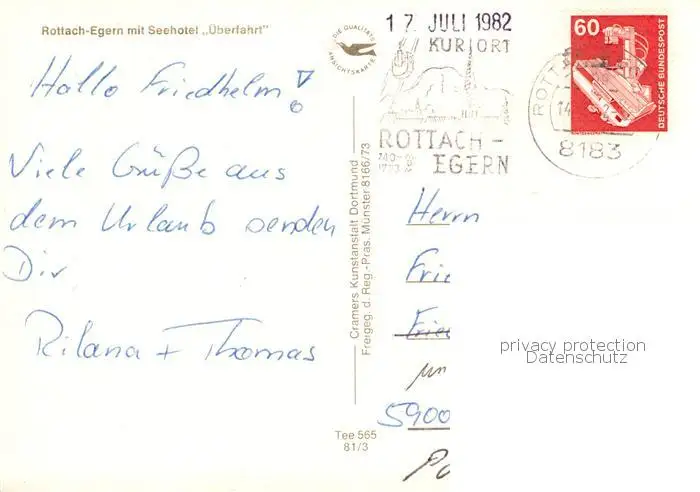 Rottach-Egern mit Seehotel „Überfahrt"
DIE QUALITÄTS
ANSICHTSKARTE
Hallo Friedhelm!
Viele Grüße aus
dem Urlaub senden
Dir
Rilana + Thomas
Cramers Kunstanstalt Dortmund
Freigeg. d. Reg.-Präs. Münster 8166/73
Tee 565
81/3
17. JULI 1982
KURORT
ROTTACH-
EGERN
60
DEUTSCHE BUNDESPOST
ROTT
14
8183
Herrn
Frie
Frie
5900
privacy protection
Datenschutz